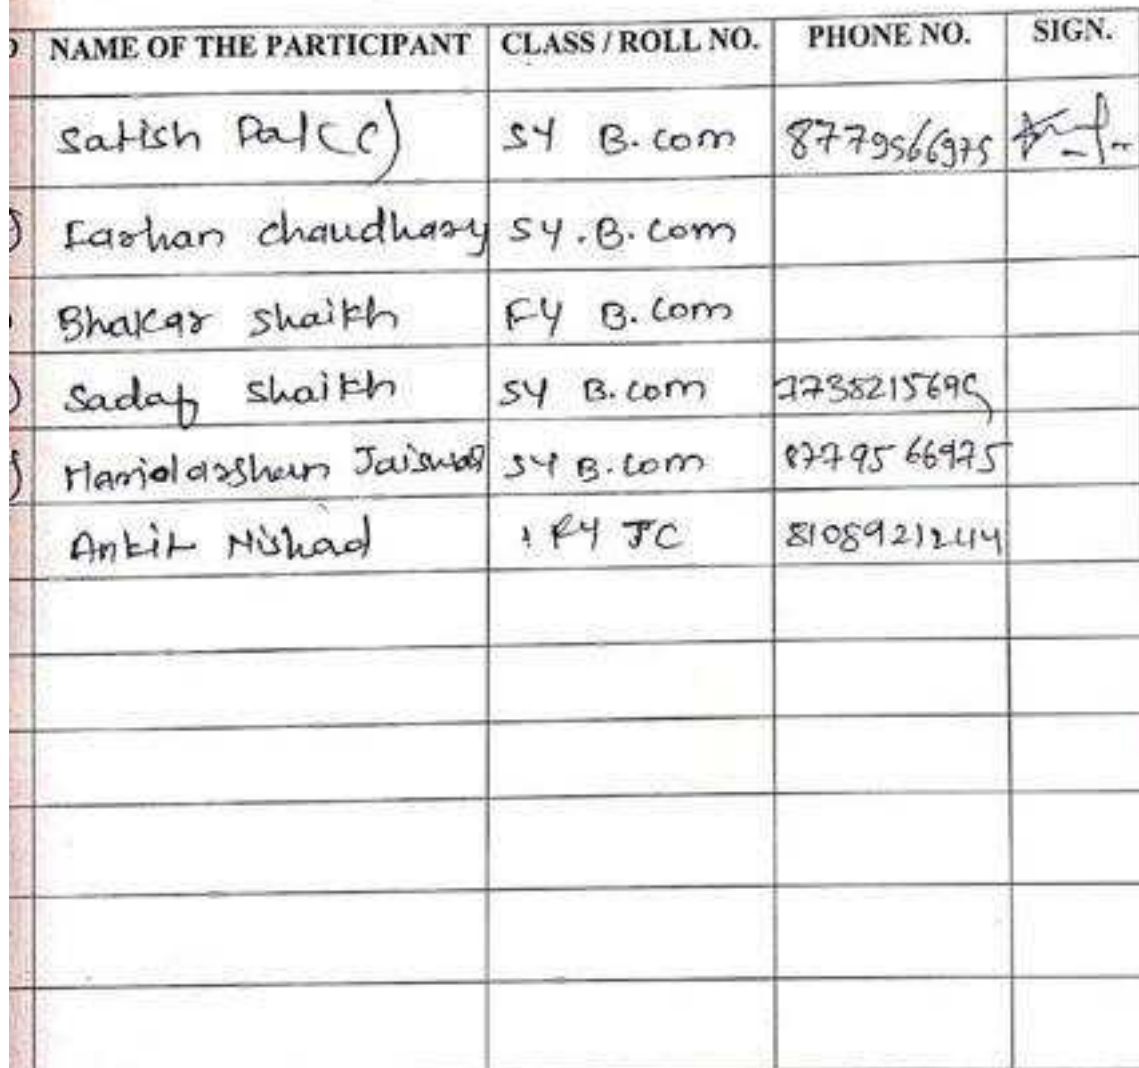 NAME OF THE PARTICIPANT CLASS / ROLL NO. PHONE NO. SIGN.
Satish Pal (C) SY B.com 8779566975
Farhan chaudhary SY.B.com
Bhakar Shaikh FY B.com
Sadaf Shaikh SY B.com
Jaiswal SY B.com 8779566975
Ankit Nishad FY JC